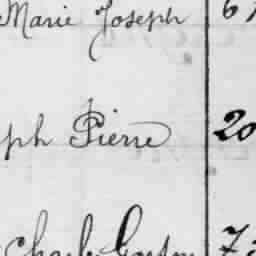 Marie Joseph 6
ph Pierre 20
Charles Gaston 7